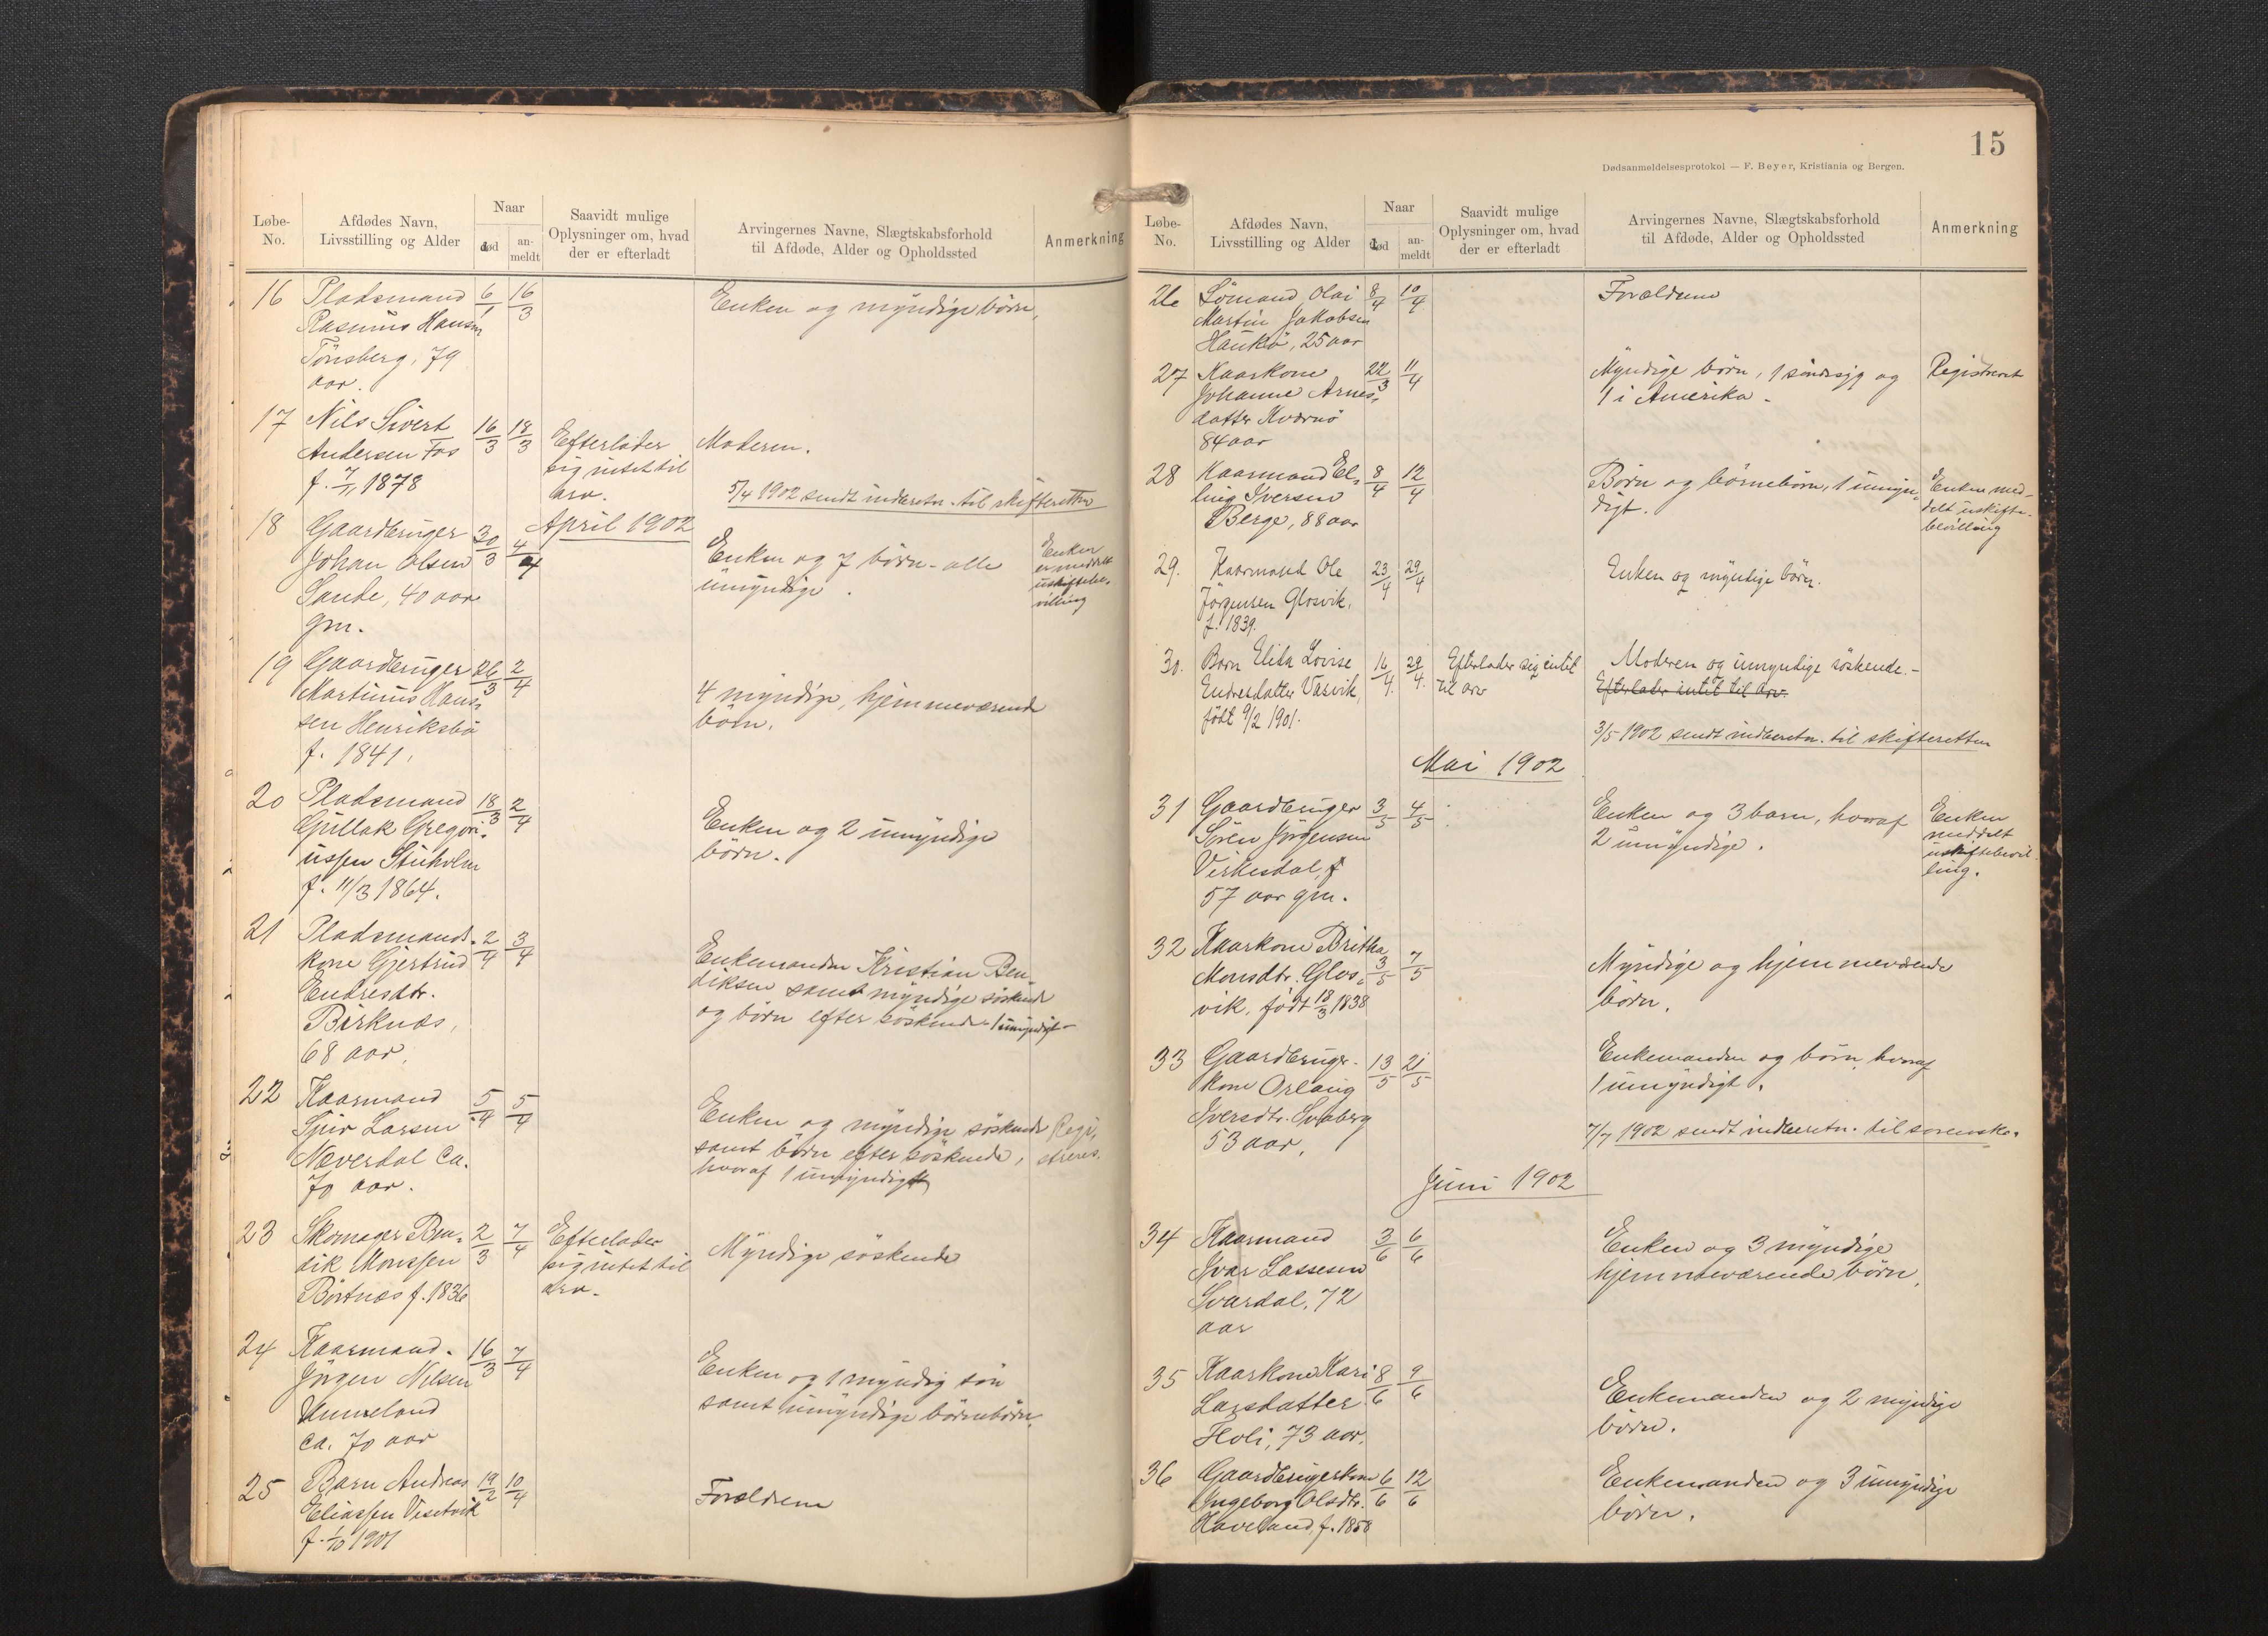 Løbe-
No.
Afdødes Navn,
Livsstilling og Alder
Naar
død
an-
meldt
Saavidt mulige
Oplysninger om, hvad
der er efterladt
Arvingernes Navne, Slægtskabsforhold
til Afdøde, Alder og Opholdssted
Anmerkning
16 Pladsmand 6/1 16/3 Enken og myndige børn.
Rasmus Hansen
Tönsberg, 79
aar.
17 Nils Sivert 16/3 18/3 Efterlader Moderen.
Andersen Fos sig intet til
f. 7/11 1878 arv.
5/4 1902 sendt indberetn. til skifteretten
April 1902
18 Gaardbruger 30/3 4/4 Enken og 7 børn - alle Enken
Johan Olsen umyndige. er meddelt
Sande, 40 aar uskiftebe-
gm. villing
19 Gaardbruger 26/3 2/4 4 myndige, hjemmeværende
Martinus Hans- børn.
sen Henriksbø
f. 1841.
20 Pladsmand 18/3 2/4 Enken og 2 umyndige
Gullak Gregori- børn.
ussen Stuholm
f. 11/3 1864.
21 Pladsmands- 2/4 3/4 Enkemanden Kristian Ben-
kone Gjertrud diksen samt myndige søskende
Endresdtr. og børn efter søskende - 1 umyndigt -
Birknæs,
68 aar.
22 Kaarmand 5/4 5/4 Enken og myndige søskende Regi-
Larsen samt børn efter søskende, streres.
Næverdal ca. hvoraf 1 umyndigt
70 aar.
23 Skomager Ben- 2/3 7/4 Efterlader Myndige søskende
dik Monssen sig intet til
Börtnæs f. 1836 arv.
24 Kaarmand 16/3 7/4 Enken og 1 myndig søn
Jörgen Nilsen samt umyndige børnebørn.
Hummeland
ca. 70 aar
25 Barn Andreas 19/2 10/4 Forældrene
Eliassen Visetvik
f. 1/10 1901
15
Dødsanmeldelsesprotokol — F. Beyer, Kristiania og Bergen.
Løbe-
No.
Afdødes Navn,
Livsstilling og Alder
Naar
død
an-
meldt
Saavidt mulige
Oplysninger om, hvad
der er efterladt
Arvingernes Navne, Slægtskabsforhold
til Afdøde, Alder og Opholdssted
Anmerkning
26 Sömand Olai 8/4 10/4 Forældrene
Martin Jakobsen
Haukö, 25 aar
27 Kaarkone 22/3 11/4 Myndige børn, 1 sindssyg og Registreret
Johanne Arnes- 1 i Amerika.
datter Kværnö
84 aar
28 Kaarmand El- 8/4 12/4 Børn og børnebørn, 1 umyn- Enken med-
ling Iversen digt. delt uskifte-
Berge, 88 aar bevilling
29. Kaarmand Ole 23/4 29/4 Enken og myndige børn.
Jörgensen Glosvik,
f. 1839.
30. Barn Elida Lovise 16/4. 29/4. Efterlader sig intet Moderen og umyndige søskende.-
Endresdatter Vasvik, til arv Efterlader intet til arv.
født 9/2 1901.
3/5 1902 sendt indberetn. til skifteretten
Mai 1902
31 Gaardbruger 3/5 4/5 Enken og 3 barn, hvoraf Enken
Sören Jörgensen 2 umyndige. meddelt
Virkesdal, uskiftebevil-
57 aar gm. ling.
32 Kaarkone Britha 3/5 7/5 Myndige og hjemmeværende
Monsdtr. Glos- børn.
vik, født 18/3 1838
33 Gaardbruger- 13/5 21/5 Enkemanden og børn, hvoraf
kone Orlaug 1 umyndigt.
Iversdtr. Svaberg
53 aar.
7/7 1902 sendt indberetn. til sorensk.
Juni 1902
34 Kaarmand 3/6 6/6 Enken og 3 myndige
Ivar Lassesen hjemmeværende børn.
Svardal, 72
aar
35 Kaarkone Kari 8/6 9/6 Enkemanden og 2 myndige
Larsdatter børn.
Hovi, 73 aar.
36 Gaardbrugerkone 6/6 12/6 Enkemanden og 3 umyndige
Ingeborg Olsdtr. børn.
Haveland, f. 1858